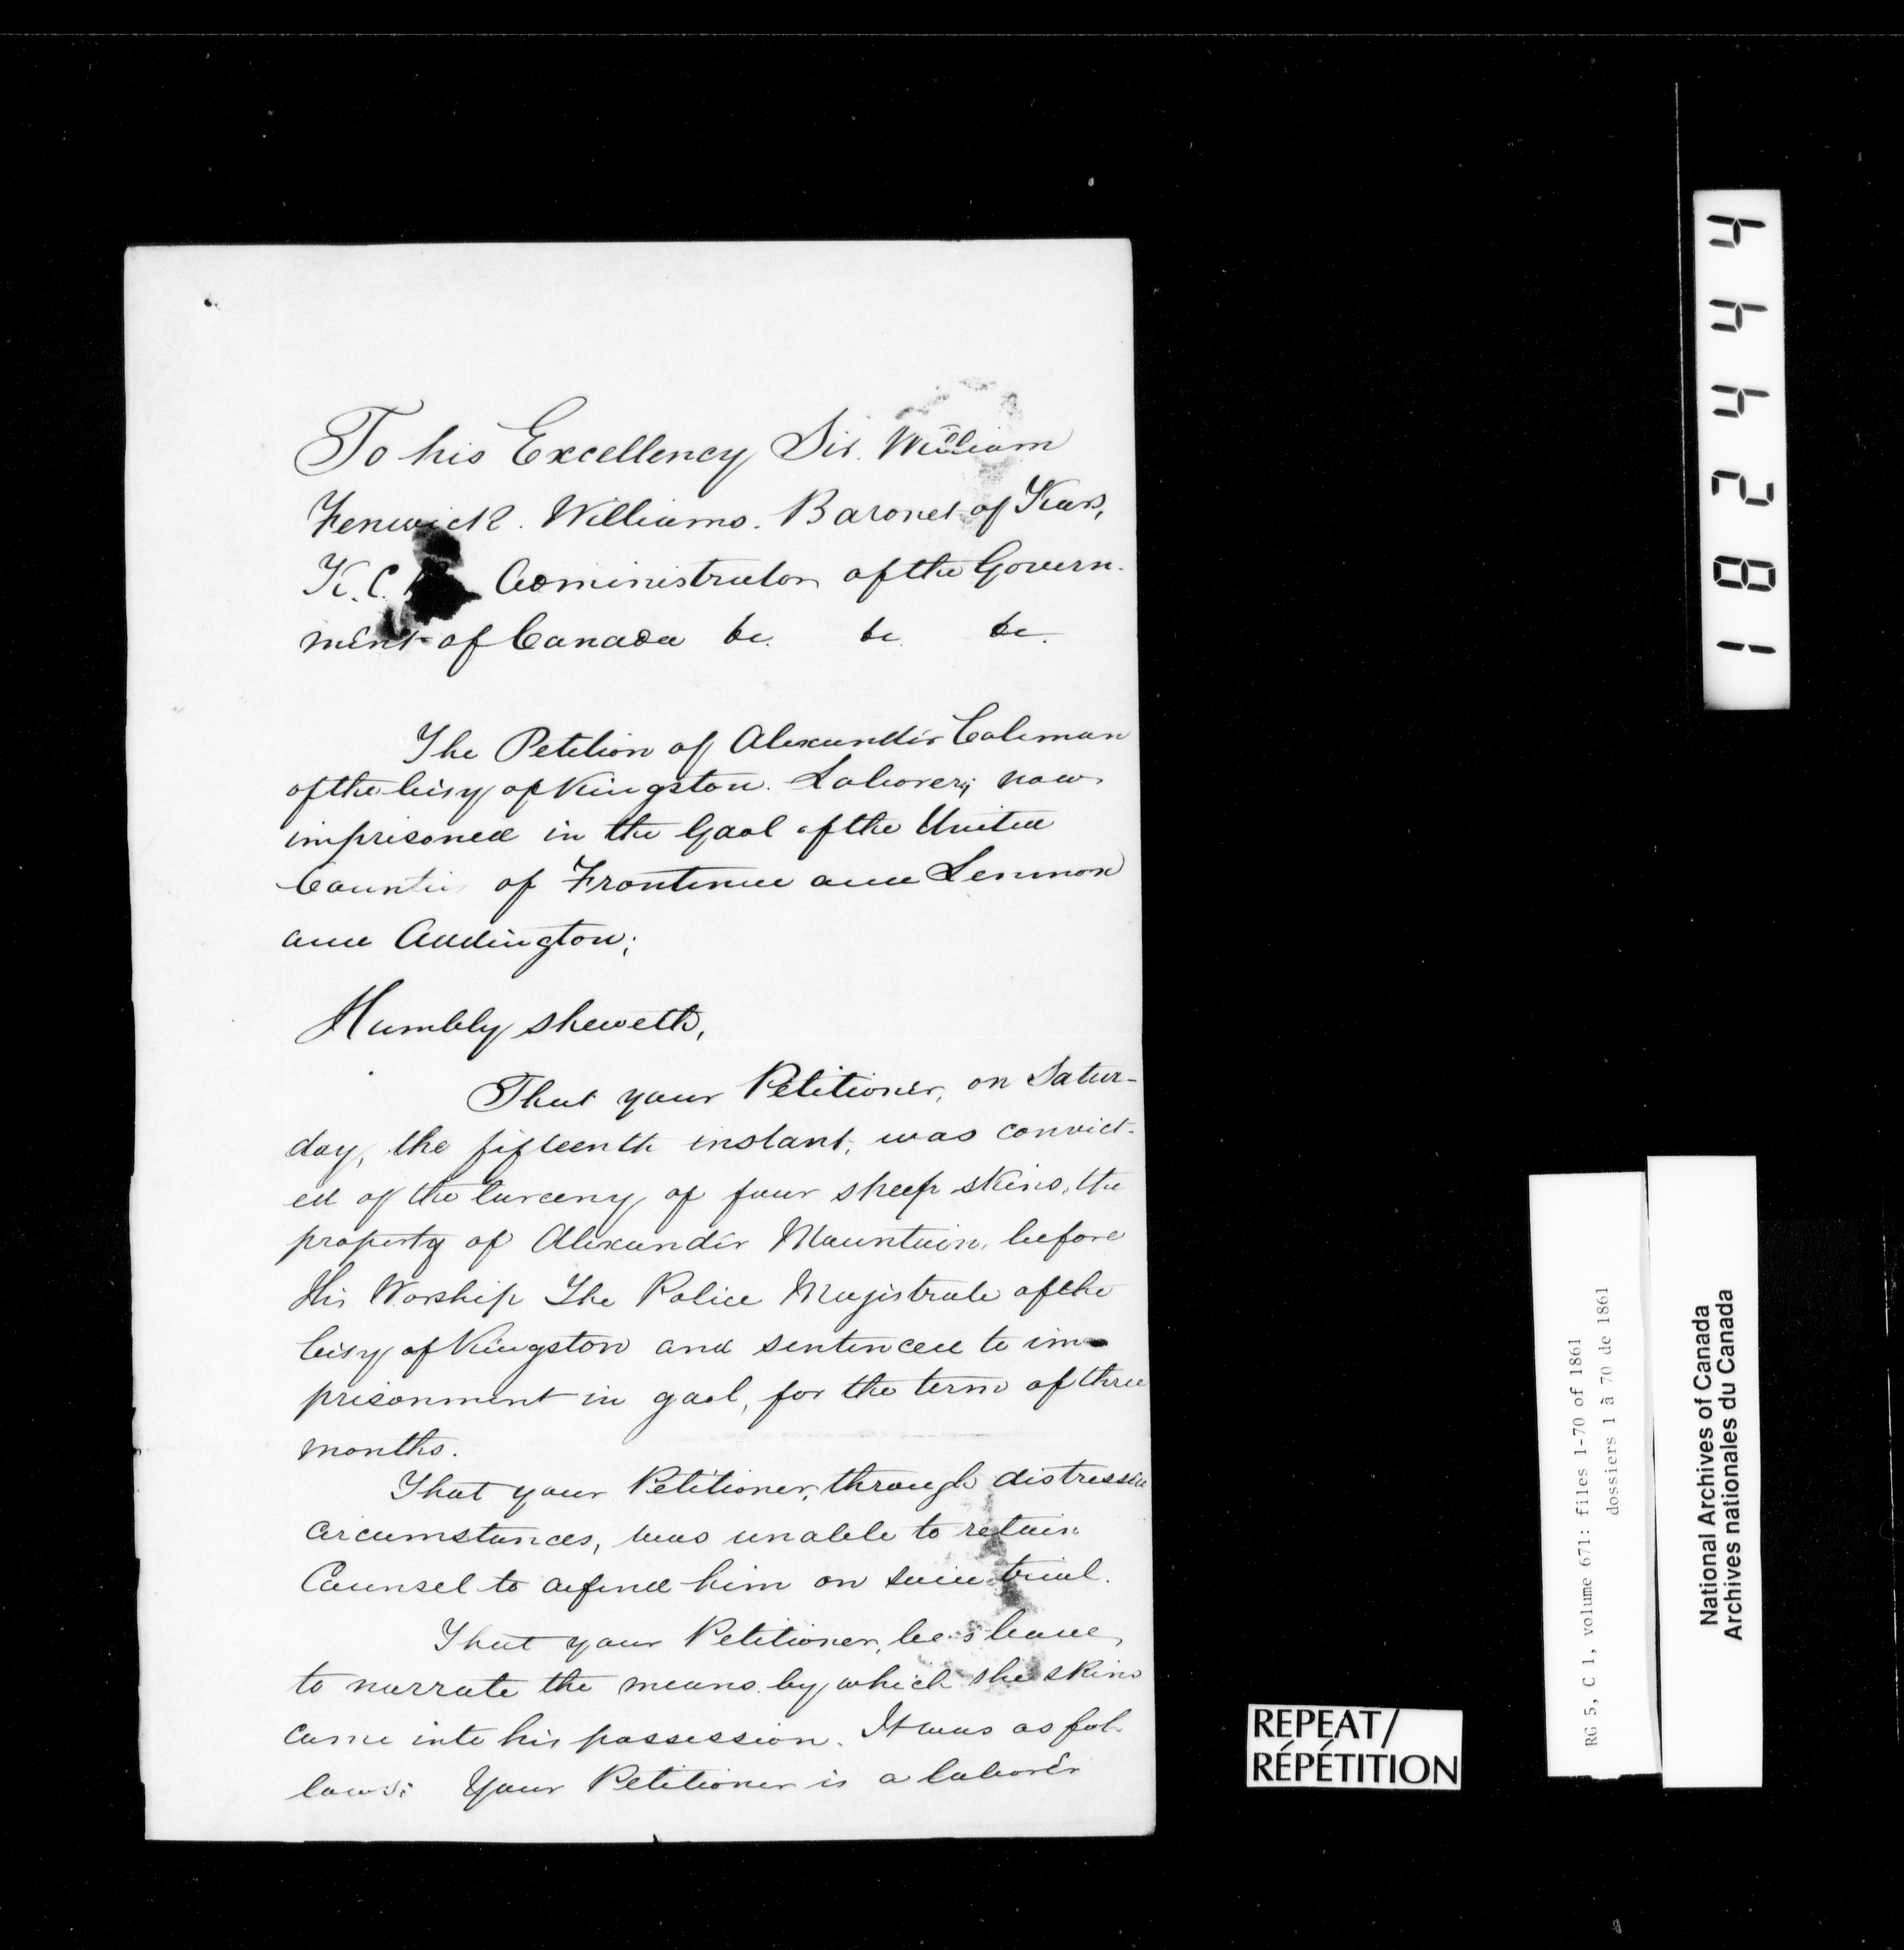 To his Excellency Sir. William
Fenwick. Williams. Baronet of Kars,
K. C. Administrator of the Govern-
ment of Canada &c. &c. &c.
The Petition of Alexander Coleman
of the City of Kingston. Laborer; now
imprisoned in the Gaol of the United
Counties of Frontenac and Lennox
and Addington;
Humbly sheweth,
That your Petitioner, on Satur-
day, the fifteenth instant, was convict-
ed of the larceny of four sheep skins, the
property of Alexander Mountain, before
His Worship The Police Magistrate of the
City of Kingston and sentenced to im-
prisonment in gaol, for the term of three
months.
That your Petitioner, through distressed
circumstances, was unable to retain
Counsel to defend him on said trial.
That your Petitioner, begs leave,
to narrate the means by which the skins
came into his possession. It was as fol-
lows: Your Petitioner is a laborer
444281
RG 5, C 1, volume 671: files 1-70 of 1861
dossiers 1 à 70 de 1861
National Archives of Canada
Archives nationales du Canada
REPEAT/
RÉPÉTITION